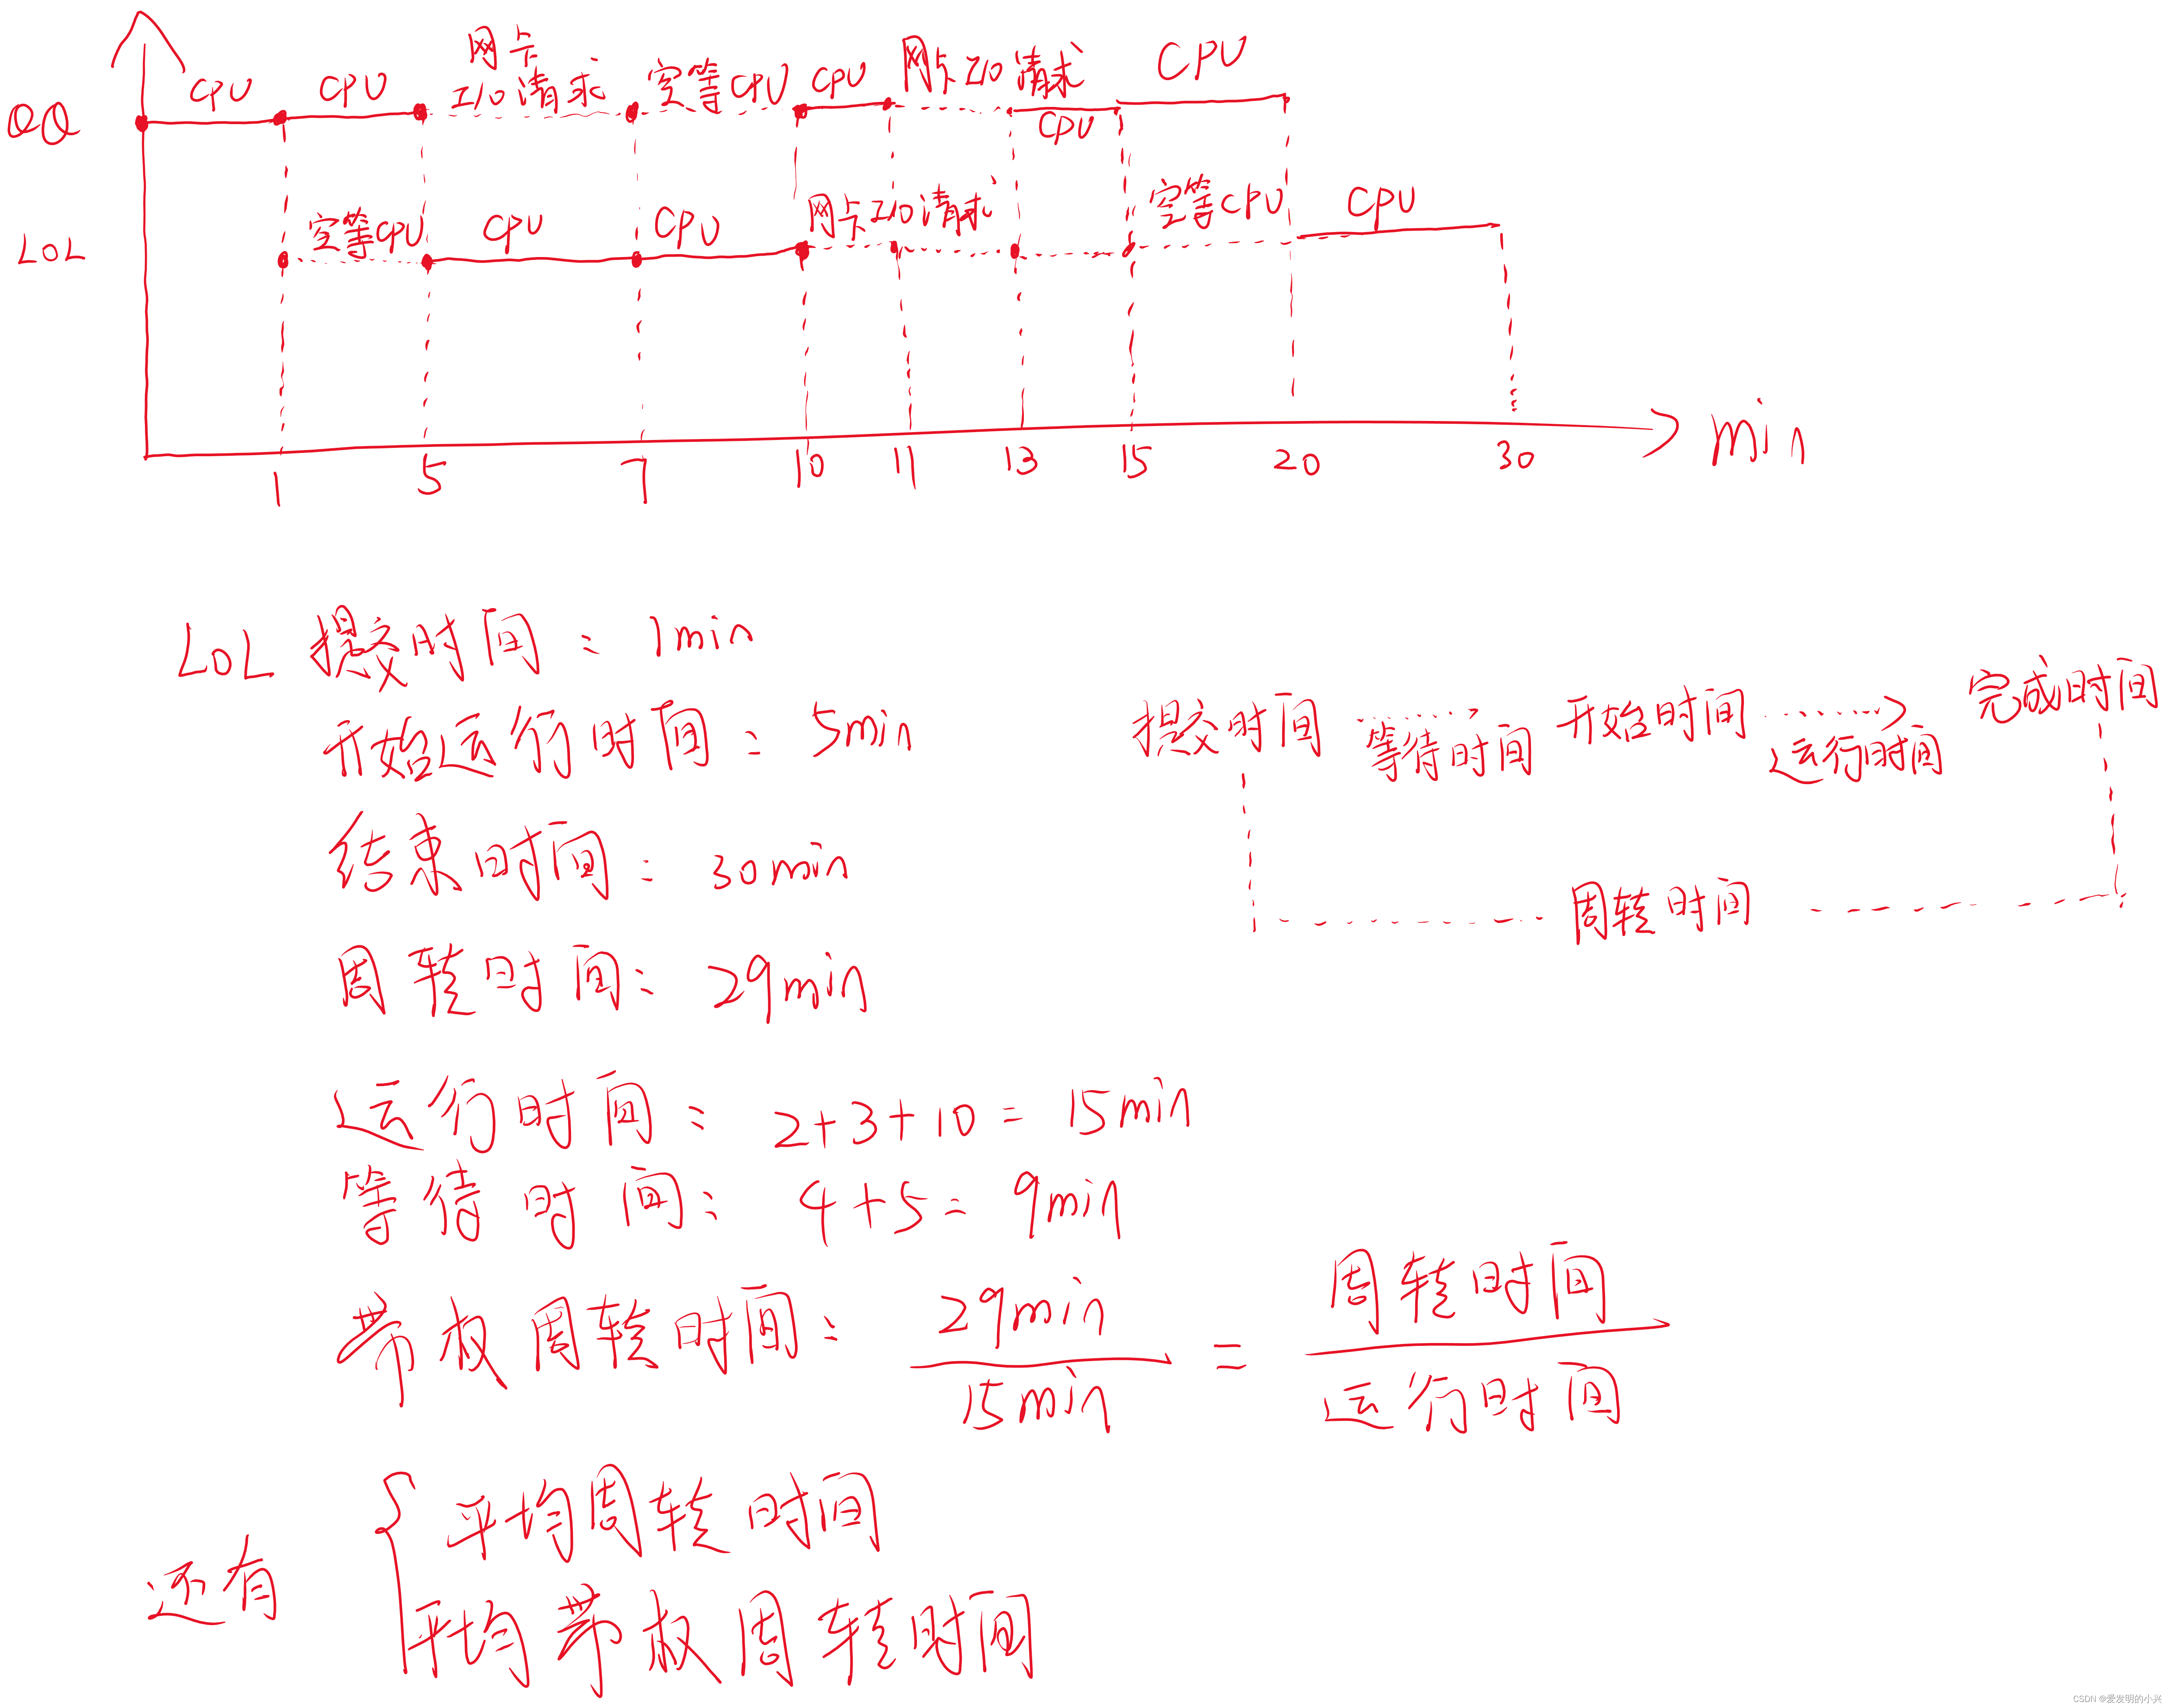 CPU CPU 网卡 I/O 请求 完善CPU CPU 网卡 I/O 请求 CPU
QQ
CPU
LOL 完善CPU CPU CPU 网卡 I/O 请求 完善CPU CPU
min
1 5 7 10 11 13 15 20 30
LOL 提交时间: 1min
开始运行时间: 5min
结束时间: 30min
周转时间: 29min
运行时间: 2+3+10=15min
等待时间: 4+5=9min
带权周转时间: 29min/15min = 周转时间/运行时间
提交时间 等待时间 开始时间 运行时间 完成时间
周转时间
还有
平均周转时间
平均带权周转时间
CSDN @爱发明的小兴